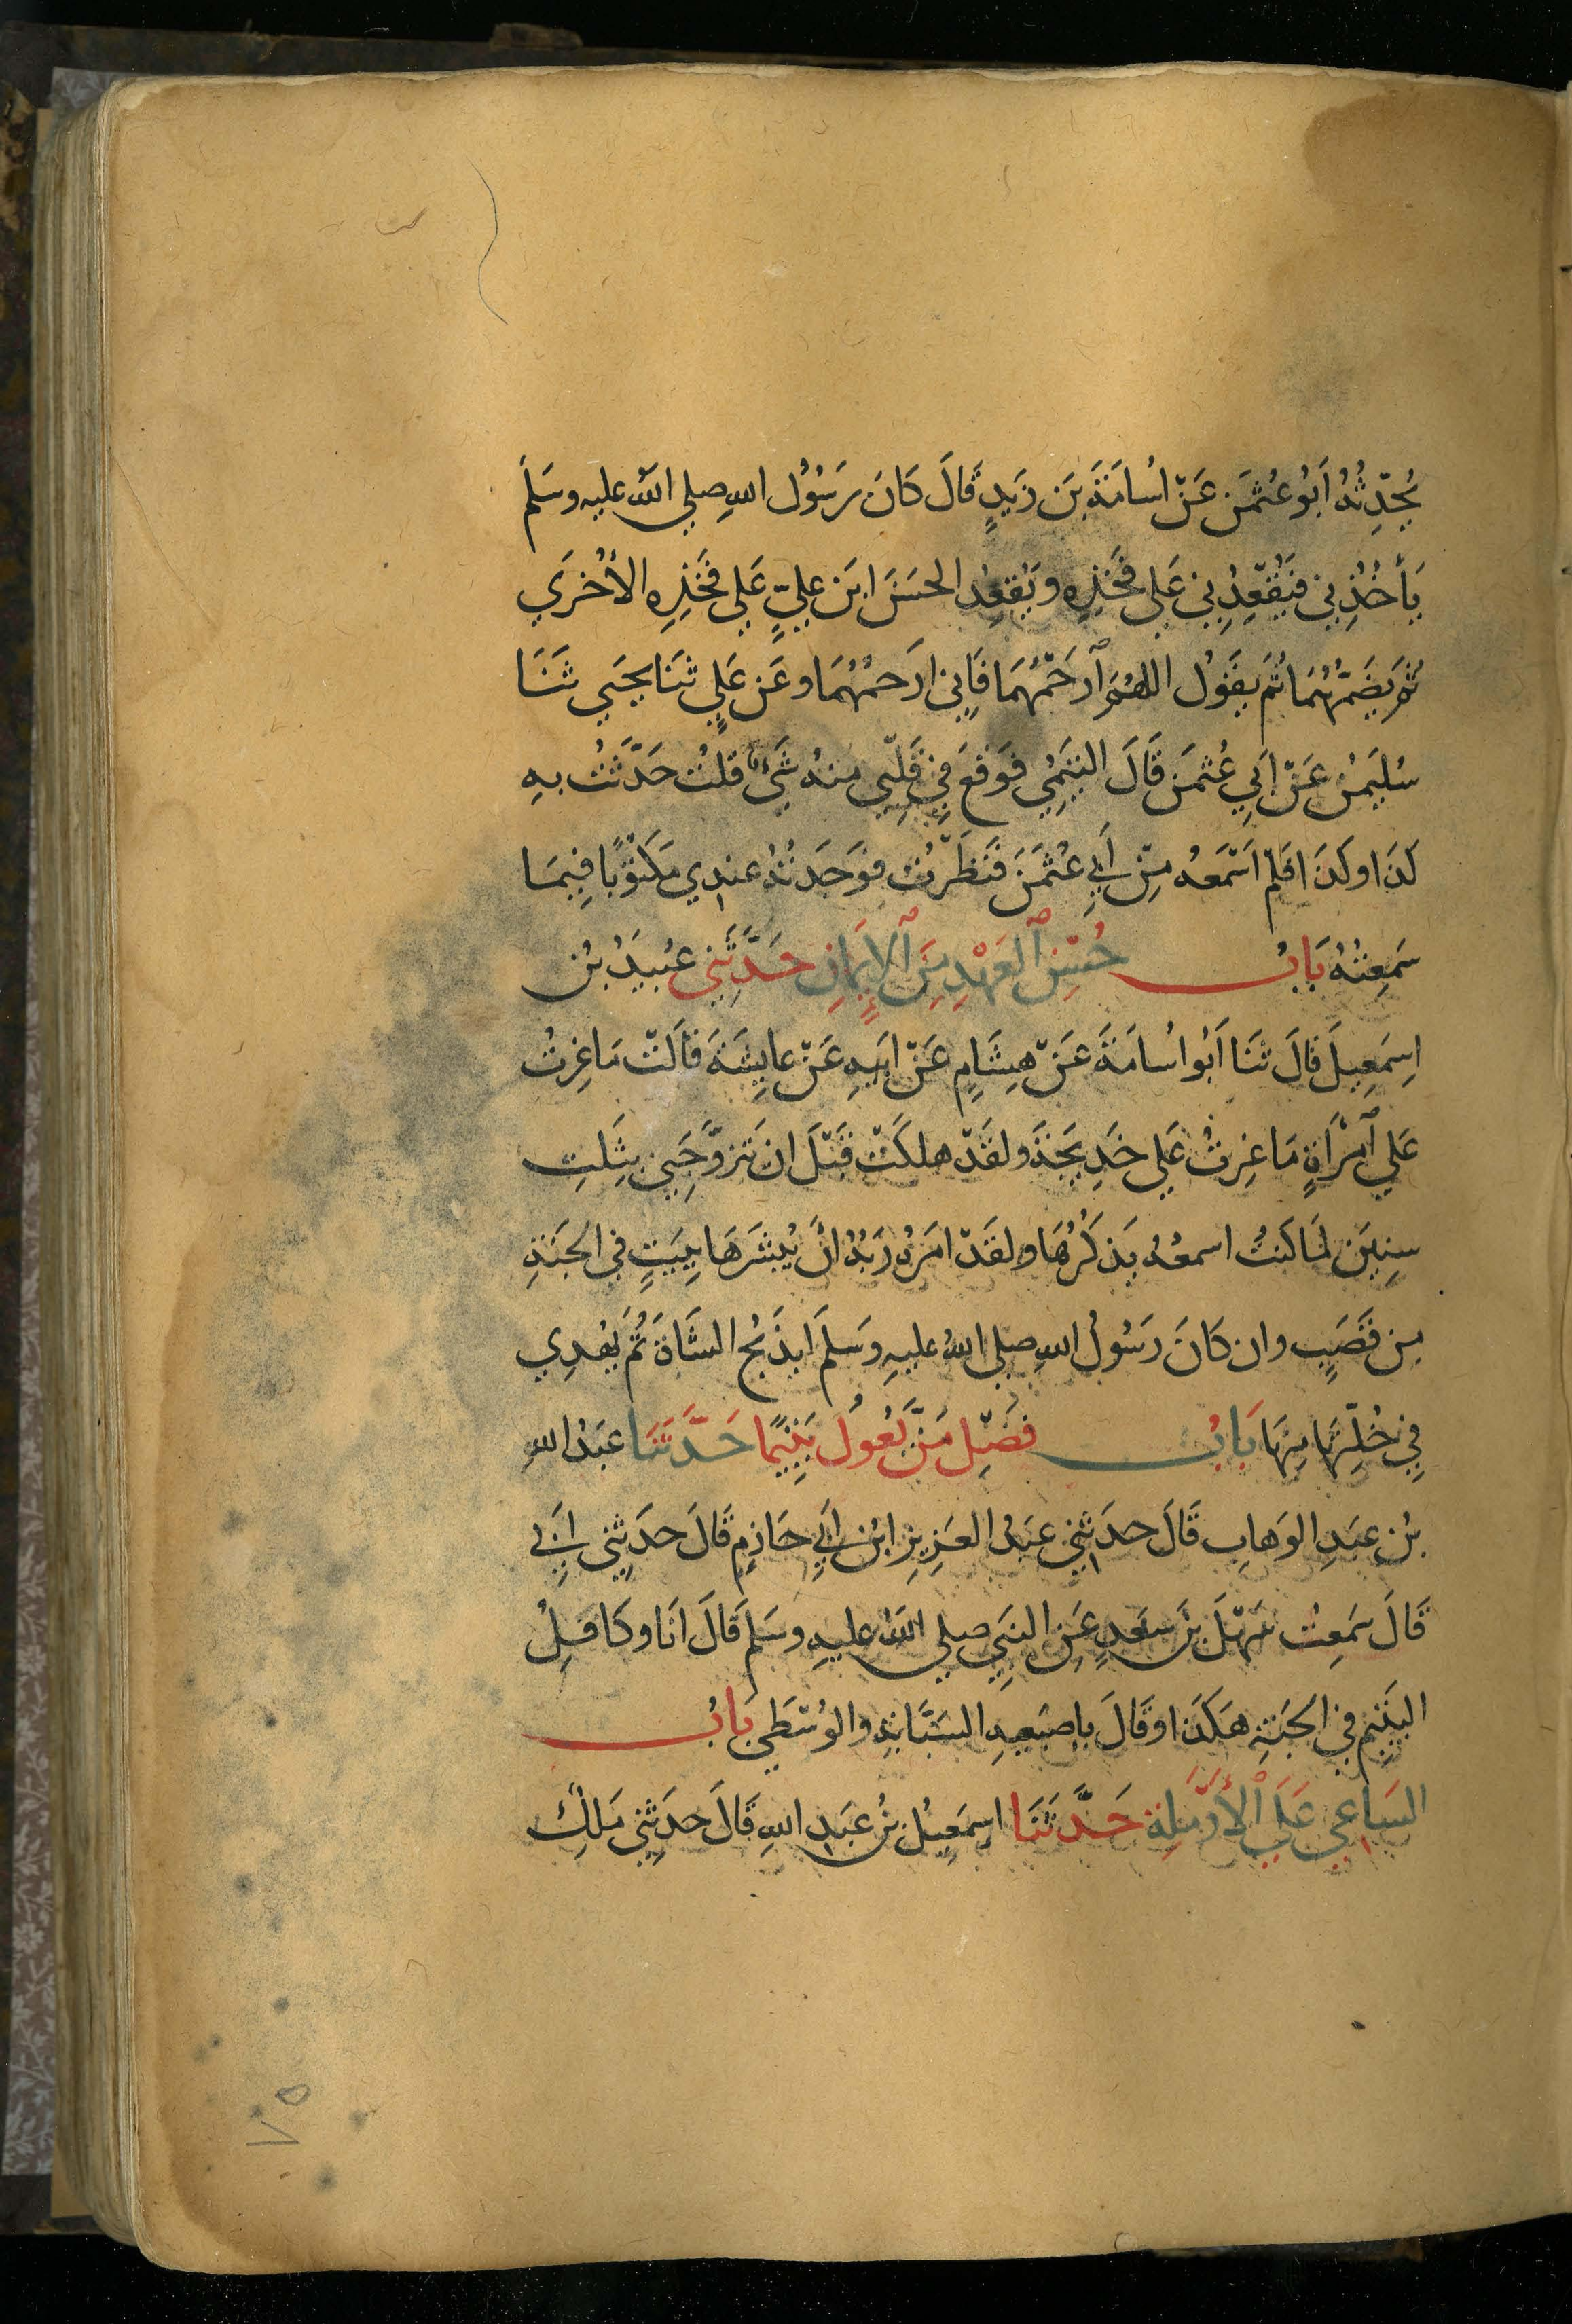 يُحَدِّثُهُ أَبُو عُثْمَنَ عَنْ اُسَامَةَ بْنِ زَيْدٍ قَالَ كَانَ رَسُوُل اللهِ صلي اللهُ عليه وسَلمَ
يَأخُذُنِي فَيُقْعِدُنِي عَلي فَخِذِهِ ويُقعِدُ الحسَنَ ابْن عليٍّ عَلي فَخِذِهِ الأُخْرَي
ثمَّ يَضُمّهُمَا ثُمَ يقَوُل اللهُمَّ ٱرْحَمْهُمَا فَاِنِي اَرْحَمُهُمَا وعَن عَليٍ ثَنَا يحَيي ثَنَا
سُليَمنُ عَنْ اَبِي عُثمَنَ قَالَ التيَمِيُ فوَقعَ فِي قَلْبِي منهُ شَيْءٌ قلتُ حَدَّثْتُ بهِ
كذَا وكذَا فلمْ اَسْمَعهُ مِنْ أَبِي عُثْمَنَ فَنَظَرْتُ فوَجَدتُهُ عندِي مَكتوُبًا فِيمَا
سَمِعتُهُ بَابُ حُسْنِ ٱلعَهْدِ مِنَ ٱلإِيمَانِ حَدَّثَنِي عبُيَدُ بْنُ
اِسمَعِيلَ قَالَ ثنَا اَبُو اُسَامَةَ عَنْ هِشَامٍ عَنْ ابَيهِ عَنْ عايِشَةَ قاَلتْ مَاغِرتُ
عَلي ٱمْرَأةٍ مَا غِرتُ عَلي خَدِيجَةَ ولقَدْ هلكَتْ قَبْلَ ان يَتَزوَّجَنِي بثِلَثِ
سنِينَ لمَا كنتُ اسمعُهُ يَذكُرُهَا ولقَدْ امَرهُ رَبُهُ انْ يُبشرَهَا بِبَيَتٍ في الجَنةِ
مِن قَصَبٍ وان كَانَ رَسُولُ اللهِ صلي اللهُ عليهِ وَسَلمَ ليَذَبحُ الشَاةَ ثُمَ يهُدِي
فِي خُلّتِهَا مِنهَا بَابُ فضْلِ مَنْ يَعُولُ يَتِيمًا حَدَّثَنَا عبَدُ اللهِ
بْنُ عبَدِ الوَهابِ قَالَ حدَثنِي عبَدُ العَزِيزِ ابْنُ اَبِي حَازِمٍ قَالَ حدَثِني اَبِي
قَالَ سَمِعتُ سَهْلَ بْنَ سعَدٍ عَنِ النَبِيِ صلي اللهُ عليهِ وسَلمَ قَالَ انَا وكَافِلُ
اليَتِيمِ في الجَنةِ هكَذَا وقَالَ باِصبَعيهِ السَبَّابةِ والوُسْطَي بَابُ
السَاعِي عَلَي ٱلأَرْمَلِة حَدَّثَنَا اسِمَعِيلُ بْنُ عبَدِ اللهِ قَالَ حدَثِني مَلكٌ
٧٥